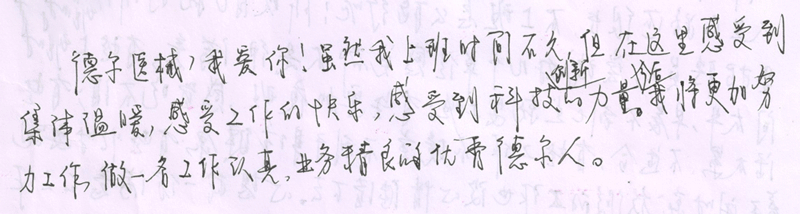 德尔医械，我爱你！虽然我上班时间不久，但在这里感受到
集体温暖，感受工作的快乐，感受到科技创新的力量。我将更加努
力工作，做一名工作认真、业务精良的优秀德尔人。